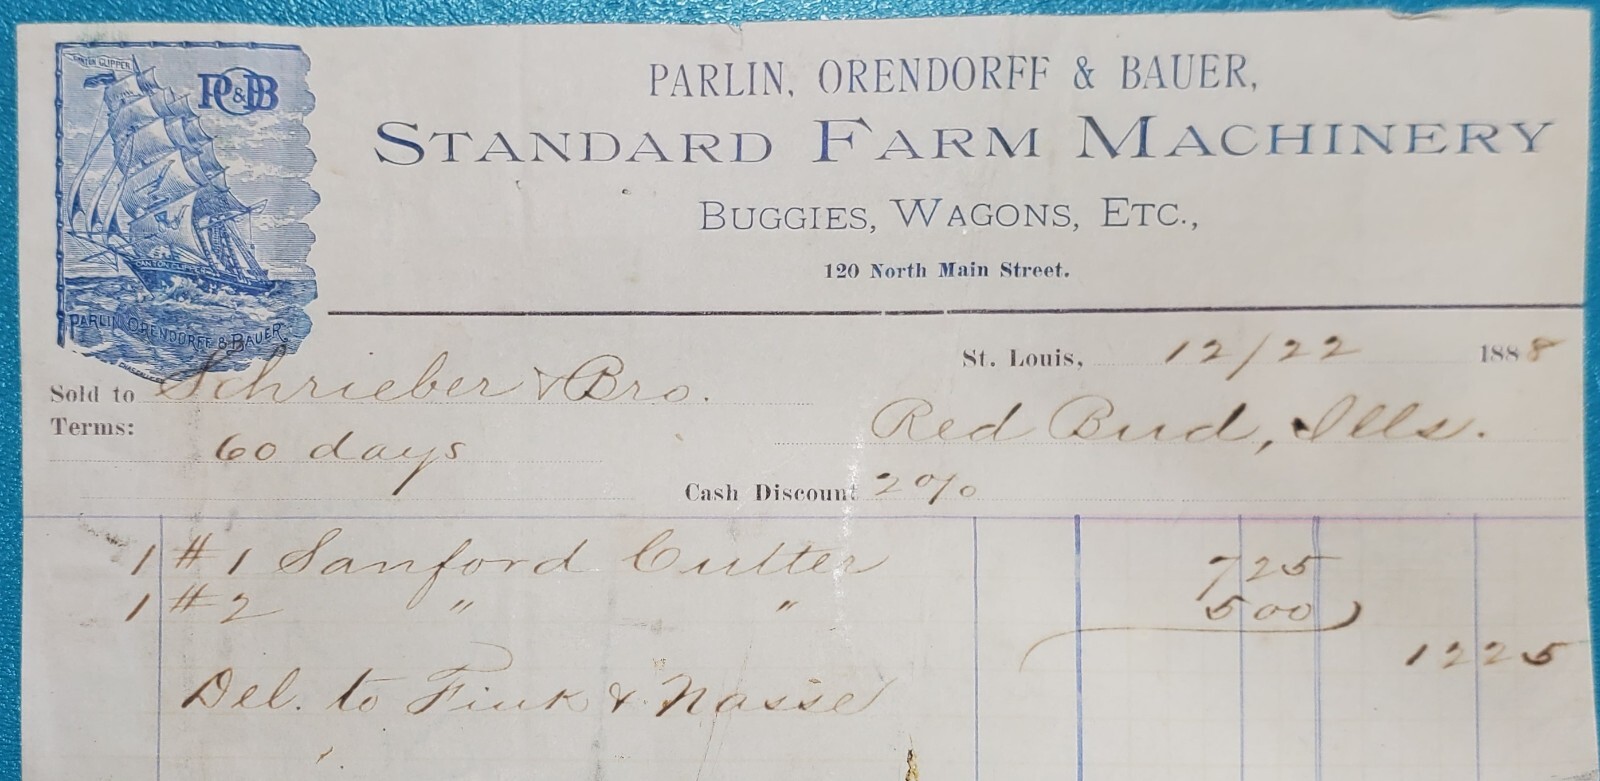 CANTON CLIPPER
PO&B
PARLIN, ORENDORFF & BAUER,
STANDARD FARM MACHINERY
BUGGIES, WAGONS, ETC.,
120 North Main Street.
CANTON CLIPPER
PARLIN ORENDORFF & BAUER
St. Louis, 12/22 1888
Sold to Schrieber & Bro.
Red Bud, Ills.
Terms: 60 days
Cash Discount 2%
1 #1 Sanford Cutter 725
1 #2 " " 500
1225
Del. to Fink & Nasse